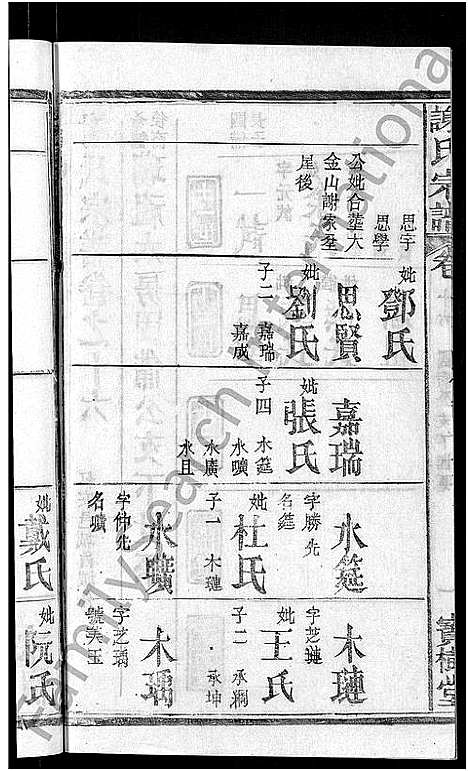 謝氏宗譜
寶樹堂
思宇
思學
公妣合塟大
金山謝家𦤶
屋後
妣鄧氏
思賢
妣劉氏
子二 嘉瑞
嘉成
嘉瑞
妣張氏
子四 水筵
水曠
水廣
水且
水筵
字勝先
名筵
妣杜氏
子一 木璉
水曠
字仲先
名曠
木璉
字芝璉
妣王氏
子二 承澗
承坤
木瑀
字芝瑀
號美玉
妣戴氏
妣阮氏
FamilySearch International